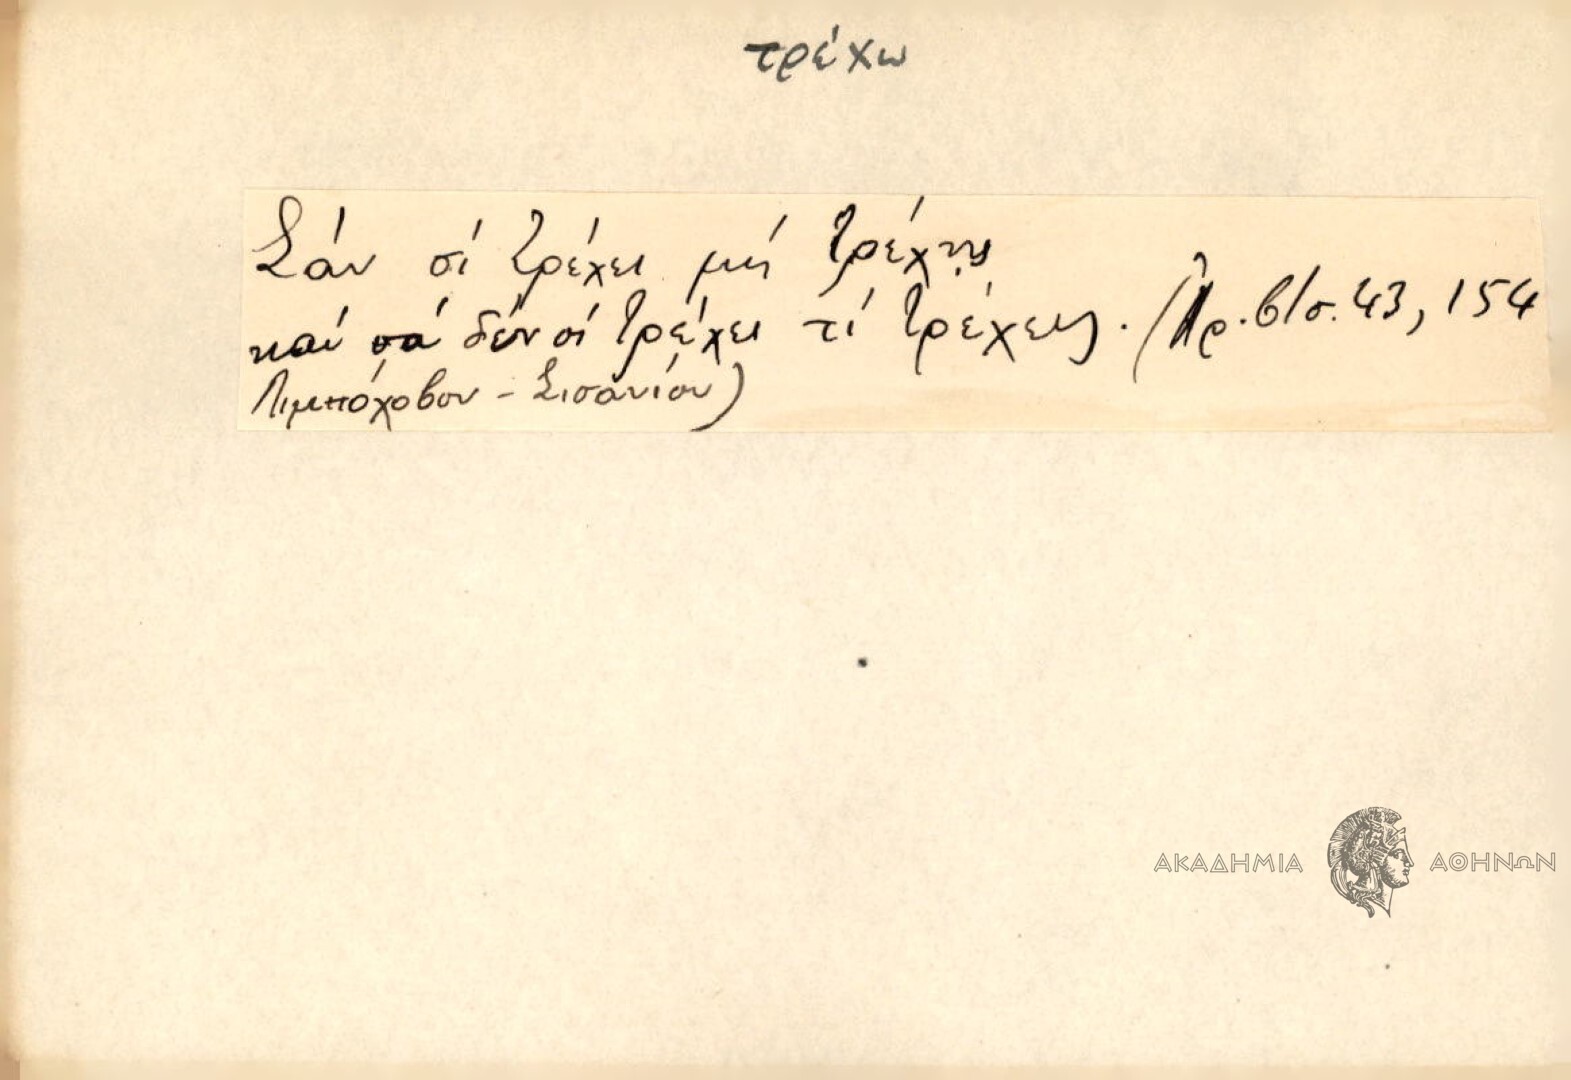 τρέχω
Σάν σί τρέχει μή τρέχῃς
καί σά δέν σί τρέχει τί τρέχεις. (Ἀρ. 613. 43, 154
Λιμπόχοβον - Σισάνιον)
ΑΚΑΔΗΜΙΑ ΑΘΗΝΩΝ